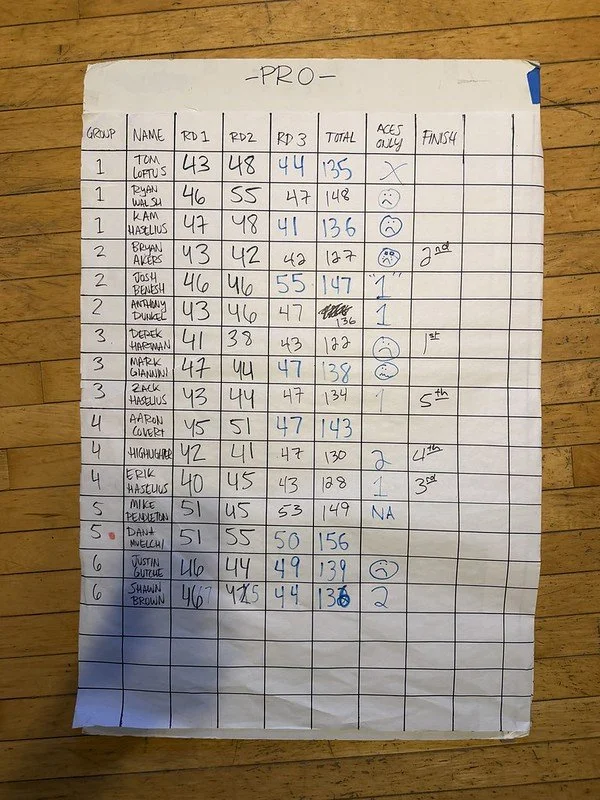 -PRO-
GROUP NAME RD1 RD2 RD3 TOTAL ACES ONLY FINISH
1 TOM LOFTUS 43 48 44 135 X
1 RYAN WALSH 46 55 47 148
1 KAM HASELIUS 47 48 41 136
2 BRYAN AKERS 43 42 42 127 2nd
2 JOSH BENESH 46 46 55 147 "1"
2 ANTHONY DUNKEL 43 46 47 136 1
3 DEREK HARTMAN 41 38 43 122 1st
3 MARK GIANNINI 47 44 47 138
3 ZACK HASELIUS 43 44 47 134 1 5th
4 AARON COVERT 45 51 47 143
4 42 41 47 130 2 4th
4 ERIK HASELIUS 40 45 43 128 1 3rd
5 MIKE PENDLETON 51 45 53 149 NA
5 DANA 51 55 50 156
6 JUSTIN GUTCHE 46 44 49 139
6 SHAWN BROWN 44 2